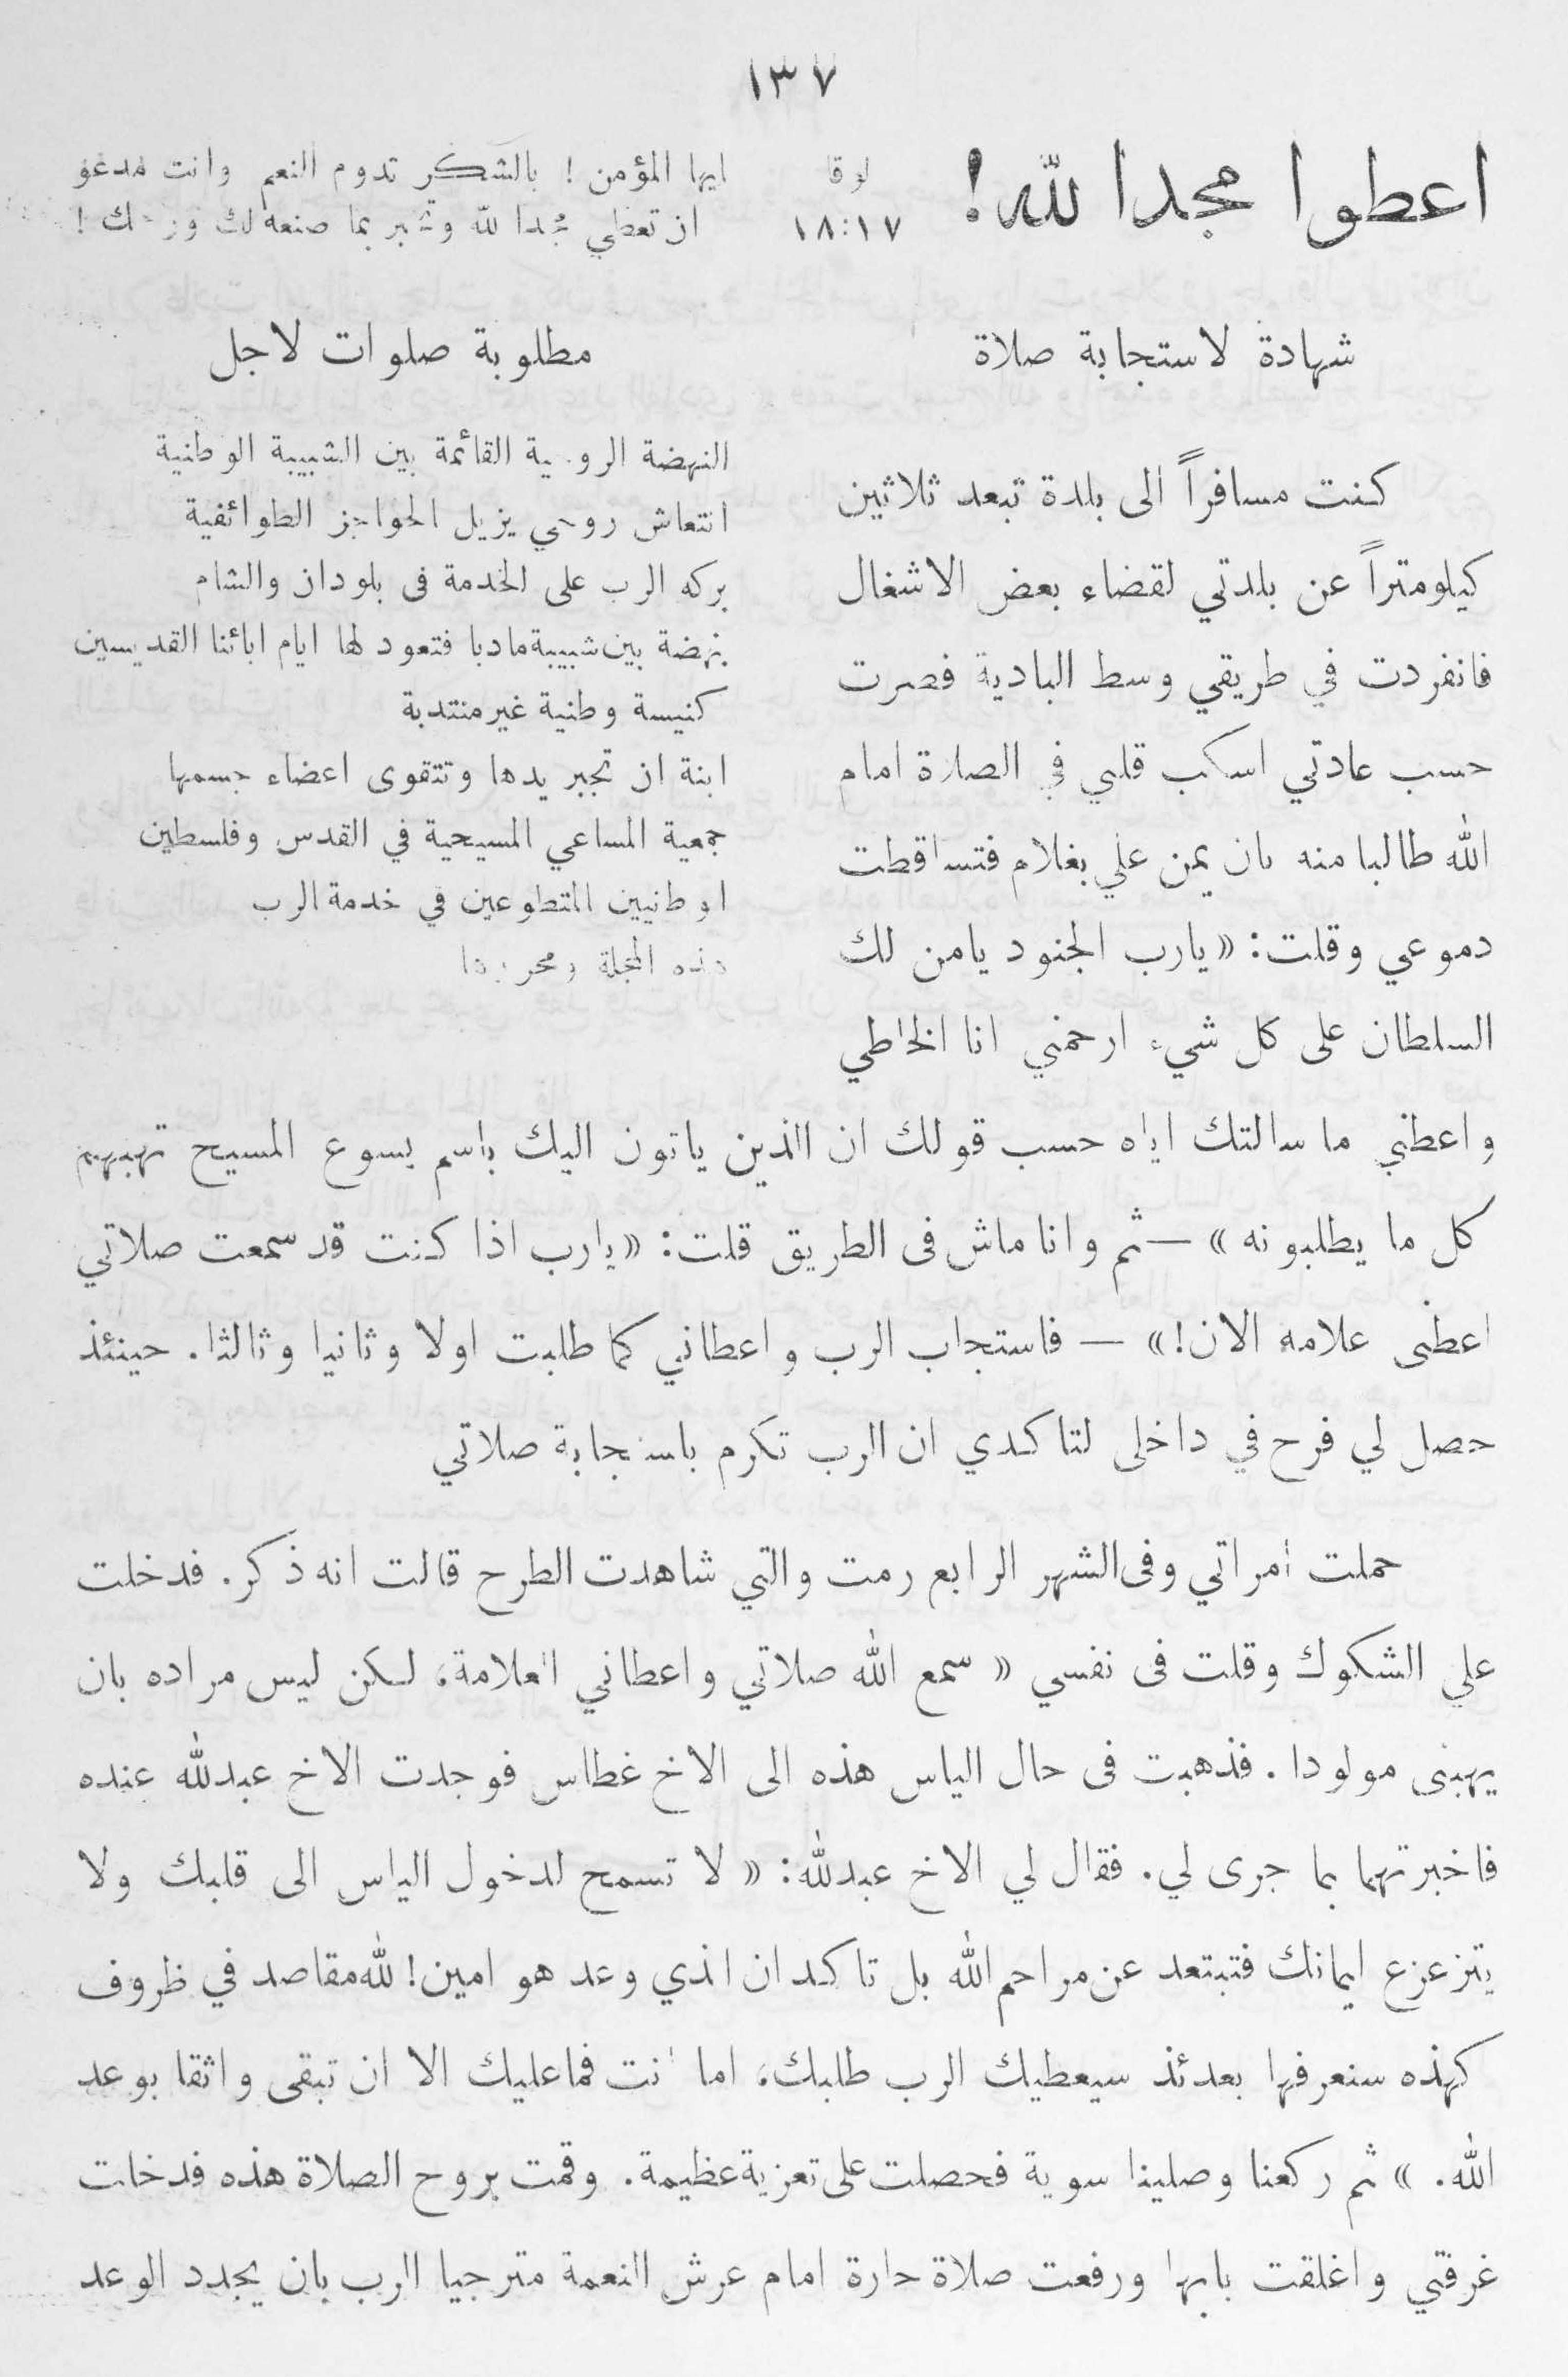 ١٣٧
اعطوا مجدا لله!
لوقا
١٨:١٧
ايها المؤمن ! بالشكر تدوم النعم وانت مدعو
ان تعطي مجدا لله وتخبر بما صنعه لك ورحمك !
شهادة لاستجابة صلاة
كنت مسافراً الى بلدة تبعد ثلاثين
كيلومتراً عن بلدتي لقضاء بعض الاشغال
فانفردت في طريقي وسط البادية فصرت
حسب عادتي اسكب قلبي في الصلاة امام
الله طالبا منه بان يمن علي بغلام فتساقطت
دموعي وقلت: « يارب الجنود يامن لك
السلطان على كل شيء ارحمني انا الخاطي
مطلوبة صلوات لاجل
النهضة الروحية القائمة بين الشبيبة الوطنية
انتعاش روحي يزيل الحواجز الطوائفية
بركه الرب على الخدمة فى بلودان والشام
نهضة بين شبيبة مادبا فتعود لها ايام ابائنا القديسين
كنيسة وطنية غير منتدبة
ابنة ان تجبر يدها وتتقوى اعضاء جسمها
جمعية المساعي المسيحية في القدس وفلسطين
الوطنيين المتطوعين في خدمة الرب
هذه المجلة ومحررها
واعطني ما سالتك اياه حسب قولك ان الذين ياتون اليك باسم يسوع المسيح تهبهم
كل ما يطلبونه » — ثم وانا ماش فى الطريق قلت: « يارب اذا كنت قد سمعت صلاتي
اعطنى علامه الان! » — فاستجاب الرب واعطاني كما طلبت اولا وثانيا وثالثا. حينئذ
حصل لي فرح في داخلى لتاكدي ان الرب تكرم باستجابة صلاتي
حملت امراتي وفى الشهر الرابع رمت والتي شاهدت الطرح قالت انه ذكر. فدخلت
علي الشكوك وقلت فى نفسي « سمع الله صلاتي واعطاني العلامة، لكن ليس مراده بان
يهبنى مولودا . فذهبت فى حال الياس هذه الى الاخ غطاس فوجدت الاخ عبدلله عنده
فاخبرتهما بما جرى لي. فقال لي الاخ عبدلله: « لا تسمح لدخول الياس الى قلبك ولا
يتزعزع ايمانك فتبتعد عن مراحم الله بل تاكد ان الذي وعد هو امين! لله مقاصد في ظروف
كهذه سنعرفها بعدئذ سيعطيك الرب طلبك، اما انت فما عليك الا ان تبقى واثقا بوعد
الله. » ثم ركعنا وصلينا سوية فحصلت على تعزية عظيمة. وقمت بروح الصلاة هذه فدخلت
غرفتي واغلقت بابها ورفعت صلاة حارة امام عرش النعمة مترجيا الرب بان يجدد الوعد